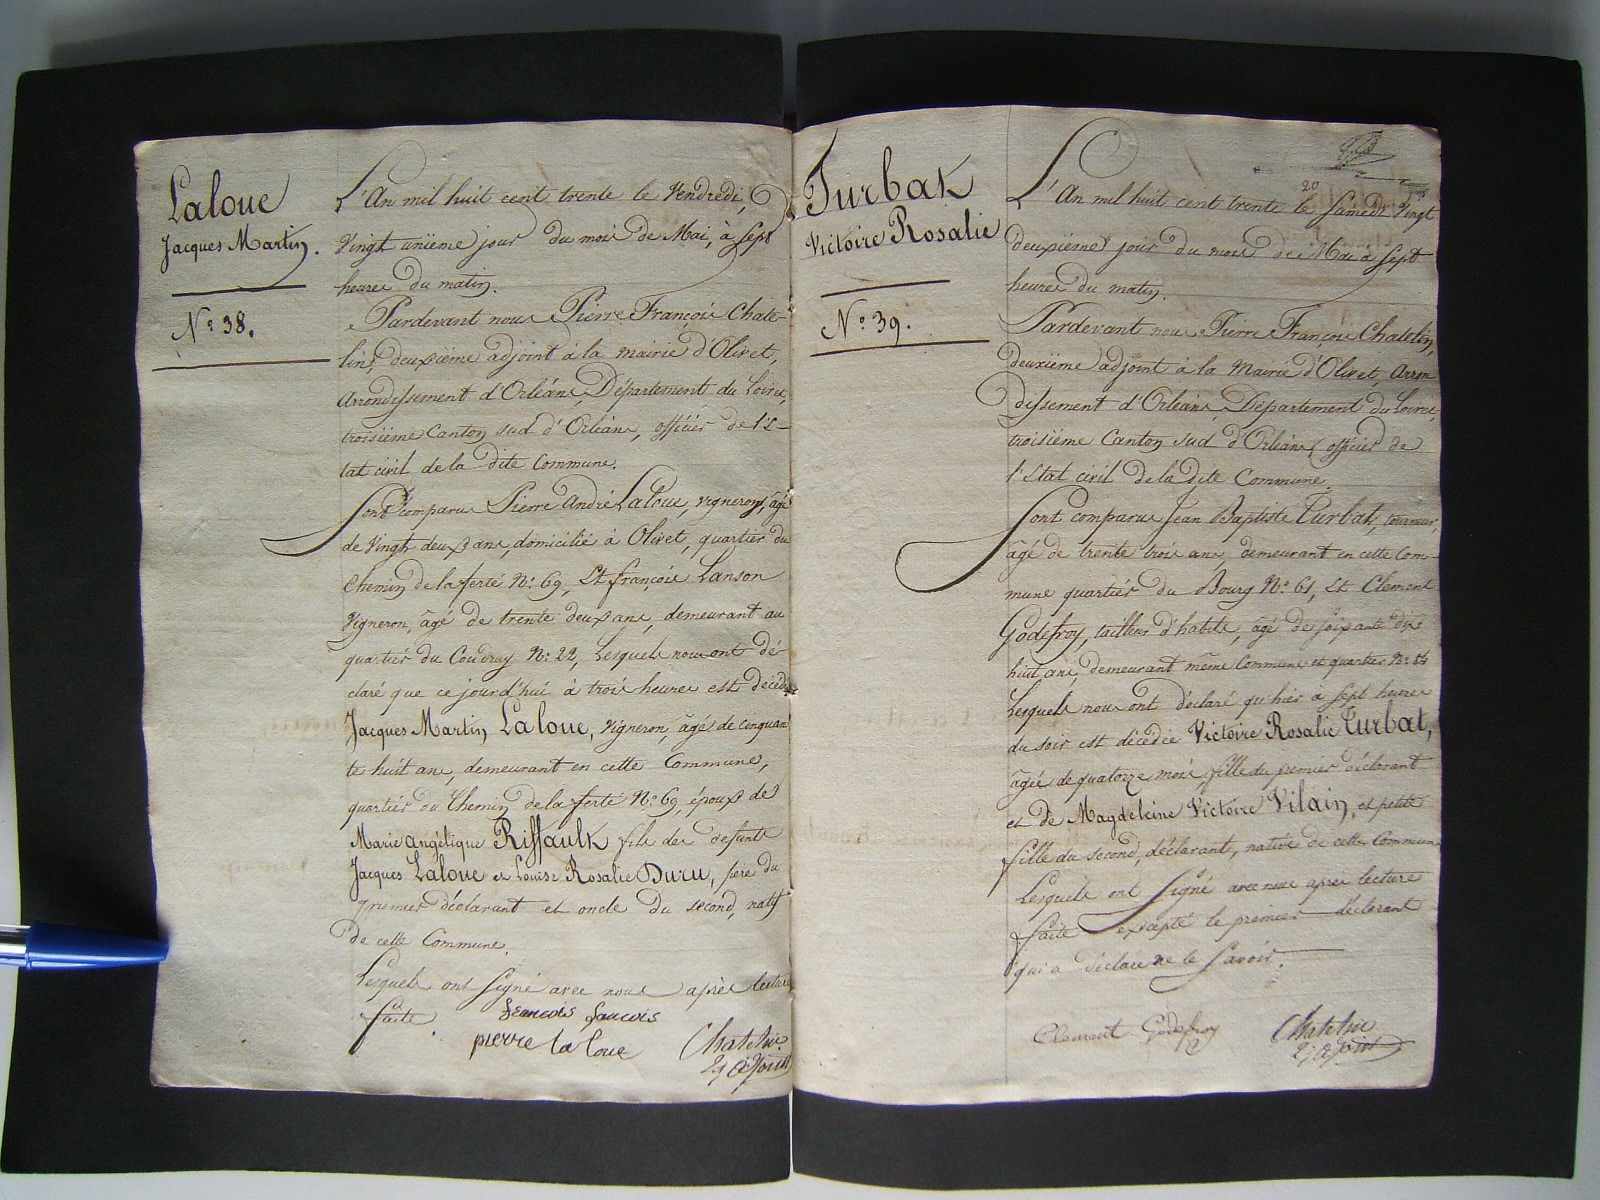 Laloue
Jacques Martin.
N.º 38.
L'An mil huit cent trente le Vendredi,
Vingt unième jour du mois de Mai, à Sept
heures du matin.
Pardevant nous Pierre François Chate-
lin, deuxième adjoint à la mairie d'Olivet,
Arrondissement d'Orléans, Département du Loiret,
troisième Canton sud d'Orléans, officier de l'E-
tat civil de la dite Commune.
Sont comparus Pierre André Laloue, vigneron, âgé
de Vingt deux ans, domicilié à Olivet, quartier du
Chemin de la ferté N.º 69, Et françois Lanson
Vigneron, âgé de trente deux ans, demeurant au
quartier du Coudray N.º 22, Lesquels nous ont dé-
claré que ce jourd'hui à trois heures est décédé
Jacques Martin Laloue, Vigneron, âgé de cinquan
te huit ans, demeurant en cette Commune,
quartier du Chemin de la ferté N.º 69, époux de
Marie angélique Riffault fils des defunts
Jacques Laloue et Louise Rosalie Duru, père du
premier déclarant et oncle du second, natif
de cette Commune.
Lesquels ont Signé avec nous après lecture
faite
pierre laloue
Chatelin
2.e adjoint
Turbat
Victoire Rosalie
N.º 39.
20
L'An mil huit cent trente le Samedi Vingt
deuxième jour du mois de Mai à Sept
heures du matin.
Pardevant nous Pierre François Chatelin,
deuxième adjoint à la Mairie d'Olivet, Arron
dissement d'Orléans, Département du Loiret,
troisième Canton sud d'Orléans, officier de
l'Etat civil de la dite Commune.
Sont comparus Jean Baptiste Turbat, tourneur,
âgé de trente trois ans, demeurant en cette Com-
mune quartier du Bourg N.º 61, Et Clement
Godefroy, tailleur d'habits, âgé de soixante dix
huit ans, demeurant même Commune et quartier N.º 84
Lesquels nous ont déclaré qu'hier à sept heures
du soir est décédée Victoire Rosalie Turbat,
âgée de quatorze mois fille du premier déclarant
et de Magdeleine Victoire Vilain, et petite
fille du second, déclarant, native de cette Commune
Lesquels ont Signé avec nous après lecture
faite excepté le premier déclarant
qui a déclaré ne le Savoir.
Clement Godefroy
Chatelin
2.e adjoint